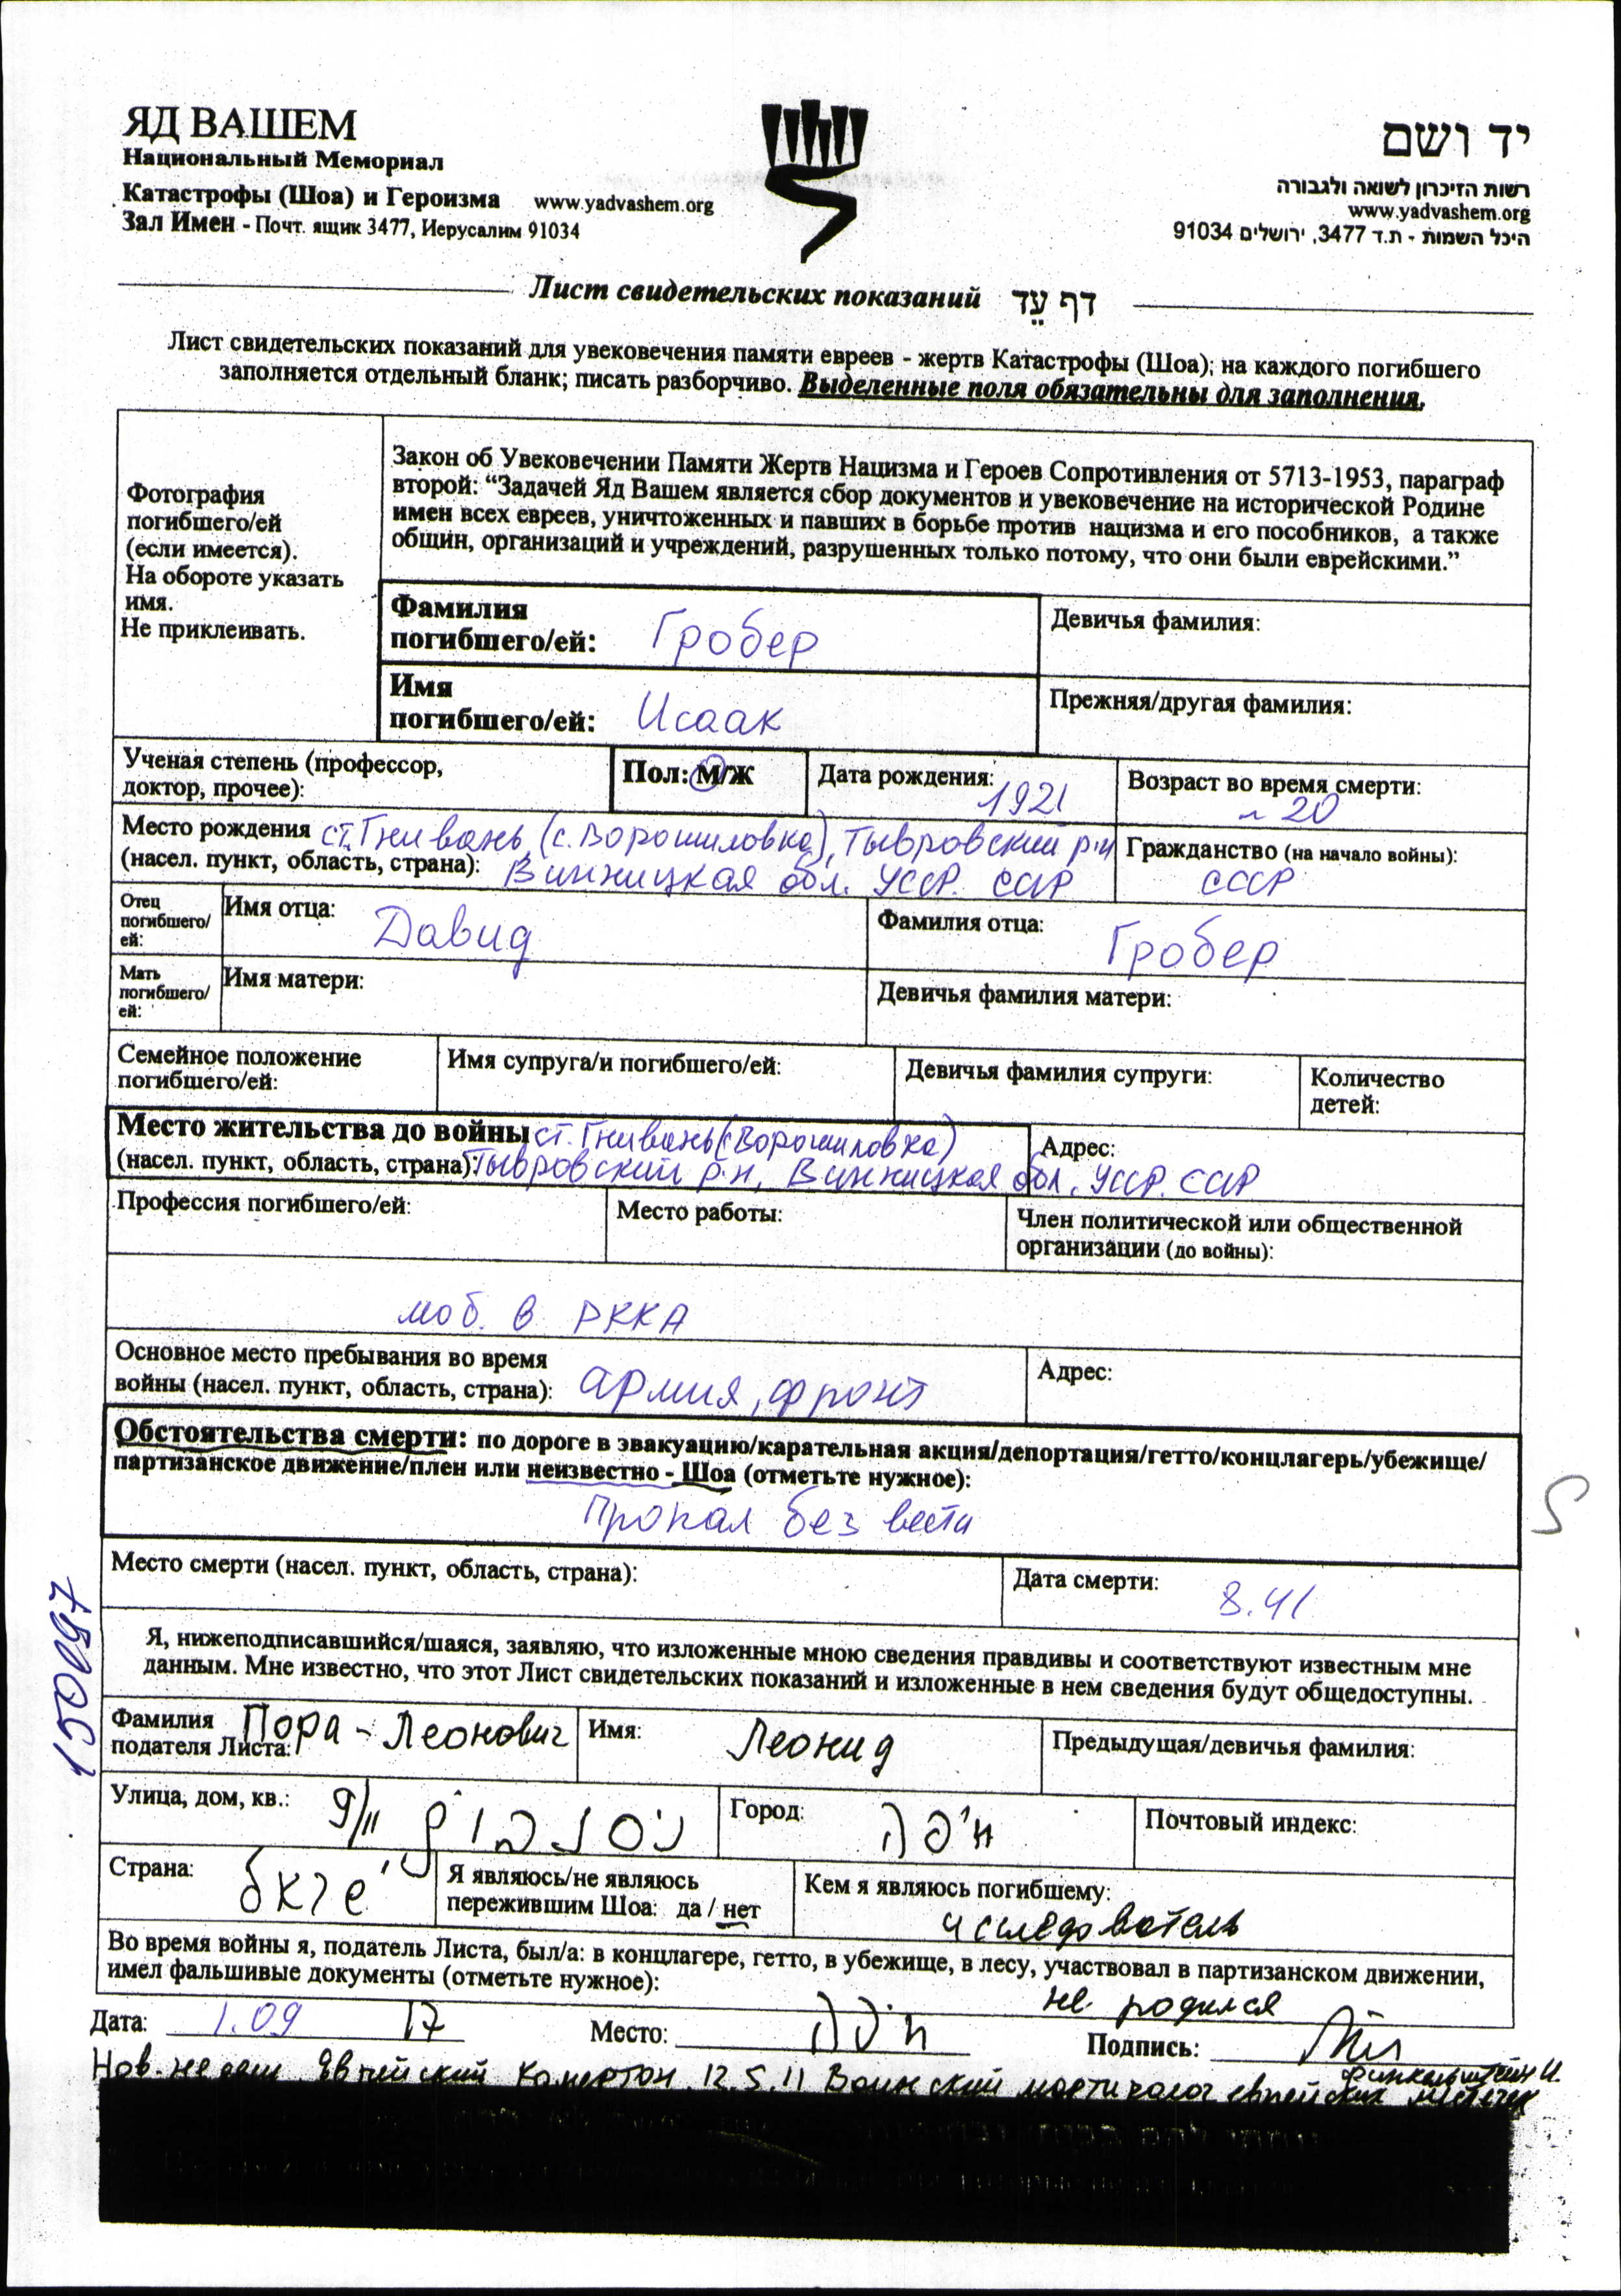 ЯД ВАШЕМ
Национальный Мемориал
Катастрофы (Шоа) и Героизма www.yadvashem.org
Зал Имен - Почт. ящик 3477, Иерусалим 91034
יד ושם
רשות הזיכרון לשואה ולגבורה
www.yadvashem.org
היכל השמות - ת.ד 3477, ירושלים 91034
Лист свидетельских показаний דף עֵד
Лист свидетельских показаний для увековечения памяти евреев - жертв Катастрофы (Шоа); на каждого погибшего
заполняется отдельный бланк; писать разборчиво. Выделенные поля обязательны для заполнения.
Фотография
погибшего/ей
(если имеется).
На обороте указать
имя.
Не приклеивать.
Закон об Увековечении Памяти Жертв Нацизма и Героев Сопротивления от 5713-1953, параграф
второй: “Задачей Яд Вашем является сбор документов и увековечение на исторической Родине
имен всех евреев, уничтоженных и павших в борьбе против нацизма и его пособников, а также
общин, организаций и учреждений, разрушенных только потому, что они были еврейскими.”
Фамилия
погибшего/ей: Гробер
Девичья фамилия:
Имя
погибшего/ей: Исаак
Прежняя/другая фамилия:
Ученая степень (профессор,
доктор, прочее):
Пол: М/Ж
Дата рождения: 1921
Возраст во время смерти:
~ 20
Место рождения ст. Гнивань (с. Ворошиловка), Тывровский р-н
(насел. пункт, область, страна): Винницкая обл. УССР. СССР
Гражданство (на начало войны):
СССР
Отец
погибшего/
ей:
Имя отца: Давид
Фамилия отца: Гробер
Мать
погибшего/
ей:
Имя матери:
Девичья фамилия матери:
Семейное положение
погибшего/ей:
Имя супруга/и погибшего/ей:
Девичья фамилия супруги:
Количество
детей:
Место жительства до войны ст. Гнивань (с Ворошиловка)
(насел. пункт, область, страна): Тывровский р-н, Винницкая обл. УССР. СССР
Адрес:
Профессия погибшего/ей:
Место работы:
Член политической или общественной
организации (до войны):
моб. в РККА
Основное место пребывания во время
войны (насел. пункт, область, страна): армия, фронт
Адрес:
Обстоятельства смерти: по дороге в эвакуацию/карательная акция/депортация/гетто/концлагерь/убежище/
партизанское движение/плен или неизвестно - Шоа (отметьте нужное):
Пропал без вести
S
Место смерти (насел. пункт, область, страна):
Дата смерти: 8.41
Я, нижеподписавшийся/шаяся, заявляю, что изложенные мною сведения правдивы и соответствуют известным мне
данным. Мне известно, что этот Лист свидетельских показаний и изложенные в нем сведения будут общедоступны.
Фамилия
подателя Листа: Пора-Леонович
Имя: Леонид
Предыдущая/девичья фамилия:
Улица, дом, кв.: 9/11
Город: חיפה
Почтовый индекс:
Страна:
Я являюсь/не являюсь
пережившим Шоа: да / нет
Кем я являюсь погибшему:
исследователь
Во время войны я, податель Листа, был/а: в концлагере, гетто, в убежище, в лесу, участвовал в партизанском движении,
имел фальшивые документы (отметьте нужное): не родился
Дата: 1.09 17
Место: חיפה
Подпись:
Нов. недели Еврейский Камертон 12.5.11 Воинский мартиролог еврейских местечек
Финкельштейн И.